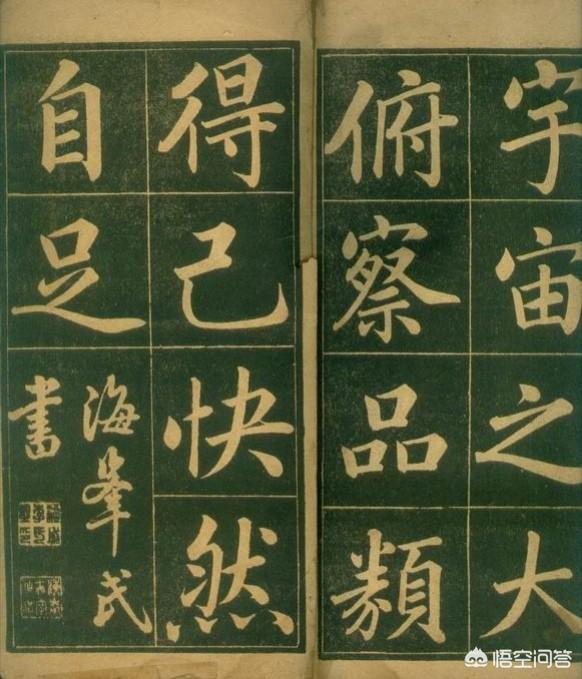 宇宙之大
俯察品類
得己快然
自足
海峯氏
書
悟空问答